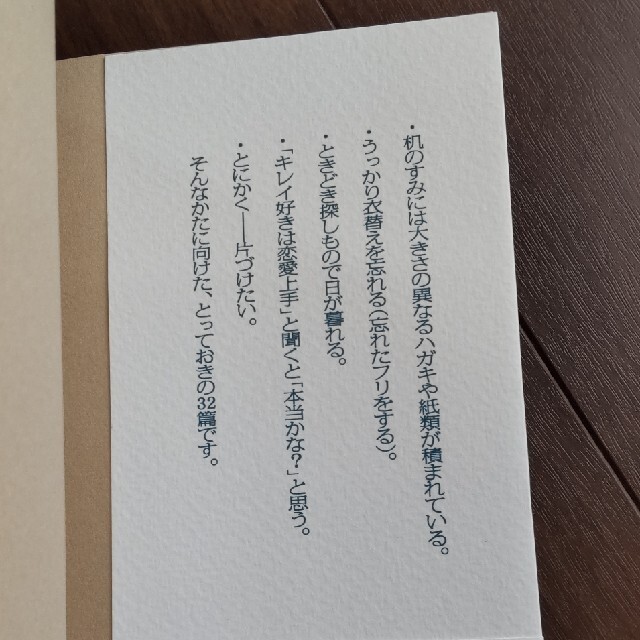 ・机のすみには大きさの異なるハガキや紙類が積まれている。
・うっかり衣替えを忘れる(忘れたフリをする)。
・ときどき探しもので日が暮れる。
・「キレイ好きは恋愛上手」と聞くと「本当かな?」と思う。
・とにかく——片づけたい。
そんなかたに向けた、とっておきの32篇です。